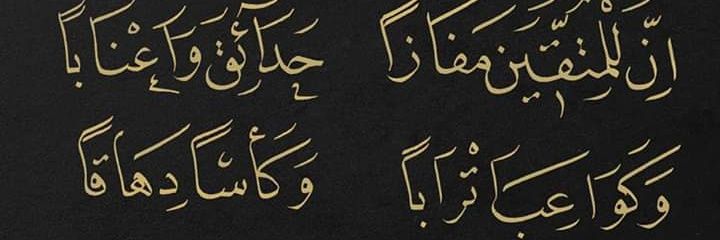 اِنَّ لِلْمُتَّقِينَ مَفَازاً حَدَائِقَ وَاَعْنَاباً
وَكَوَاعِبَ اَتْرَاباً وَكَأْساً دِهَاقاً